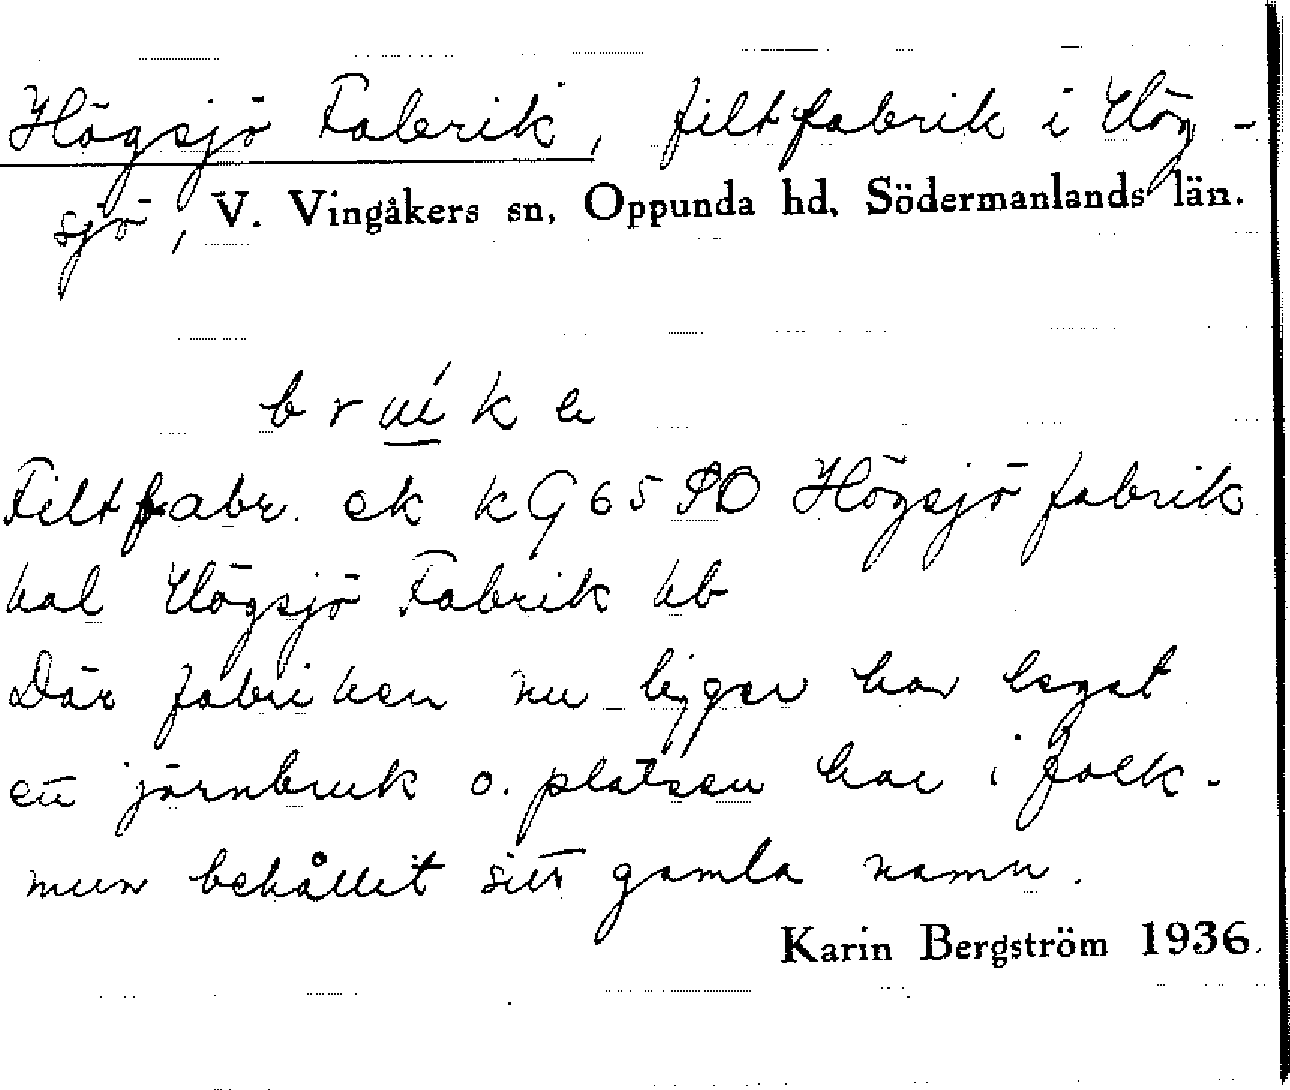 Högsjö Fabrik, filtfabrik i Hög-
sjö, V. Vingåkers sn, Oppunda hd, Södermanlands län.
Filtfabr. ek kG65SO Högsjö fabrik
hal Högsjö Fabrik hb
Där fabriken nu ligger har legat
ett järnbruk o. platsen har i folk-
mun behållit sitt gamla namn.
Karin Bergström 1936.